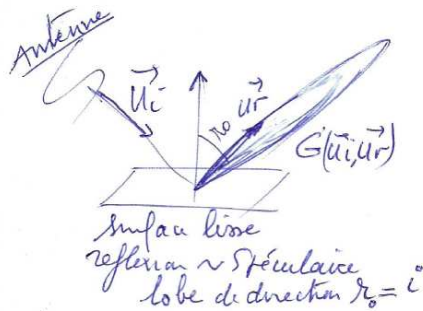 Antenne
u⃗i
r₀
u⃗r
G(u⃗i,u⃗r)
surface lisse
reflexion ~ Spéculaire
lobe de direction r₀ = i